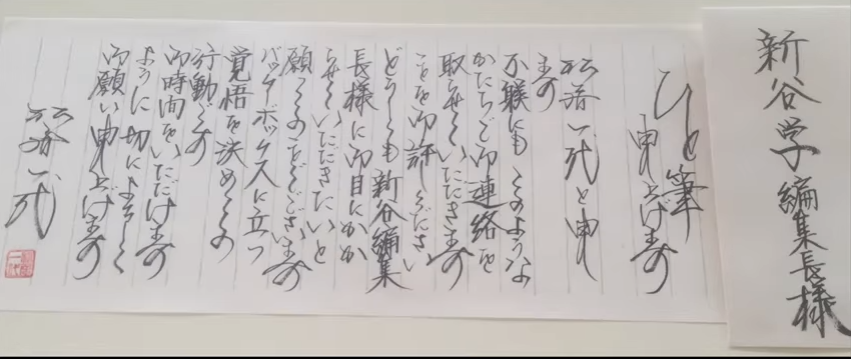 新谷学編集長様
ひと筆
申上げます
松居一代と申
します
不躾にもこのような
かたちで御連絡を
取らせていただきます
ことを御許しください
どうしても新谷編集
長様に御目にかか
らせていただきたいと
願ってのことでございます
バッターボックスに立つ
覚悟を決めての
行動です
御時間をいただけます
ように切によろしく
御願い申上げます
松居一代